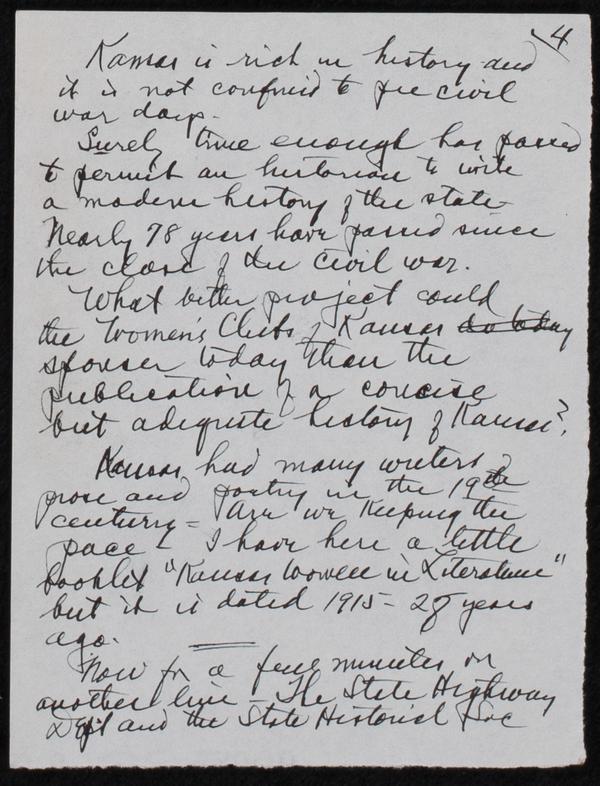 4
Kansas is rich in history and
it is not confined to the civil
war days.
Surely time enough has passed
to permit an historian to write
a modern history of the state
Nearly 78 years have passed since
the close of the Civil war.
What better project could
the Women's Clubs of Kansas do today
sponser today than the
publication of a concise
but adequate history of Kansas?
Kansas had many writers
prose and poetry in the 19th
century = Are we keeping the
pace - I have here a little
booklet "Kansas Women in Literature"
but it is dated 1915 - 28 years
ago.
Now for a few minutes on
another line - The State Highway
Dept and the State Historical Soc